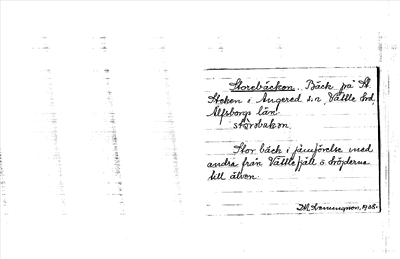 Storebäcken. Bäck på St.
Steken i Angered s:n, Vättle hrd
Älfsborgs län.
stòrəbækən.
Stor bäck i jämförelse med
andra från Vättlefjäll o. Sröderna
till älven.
1908.